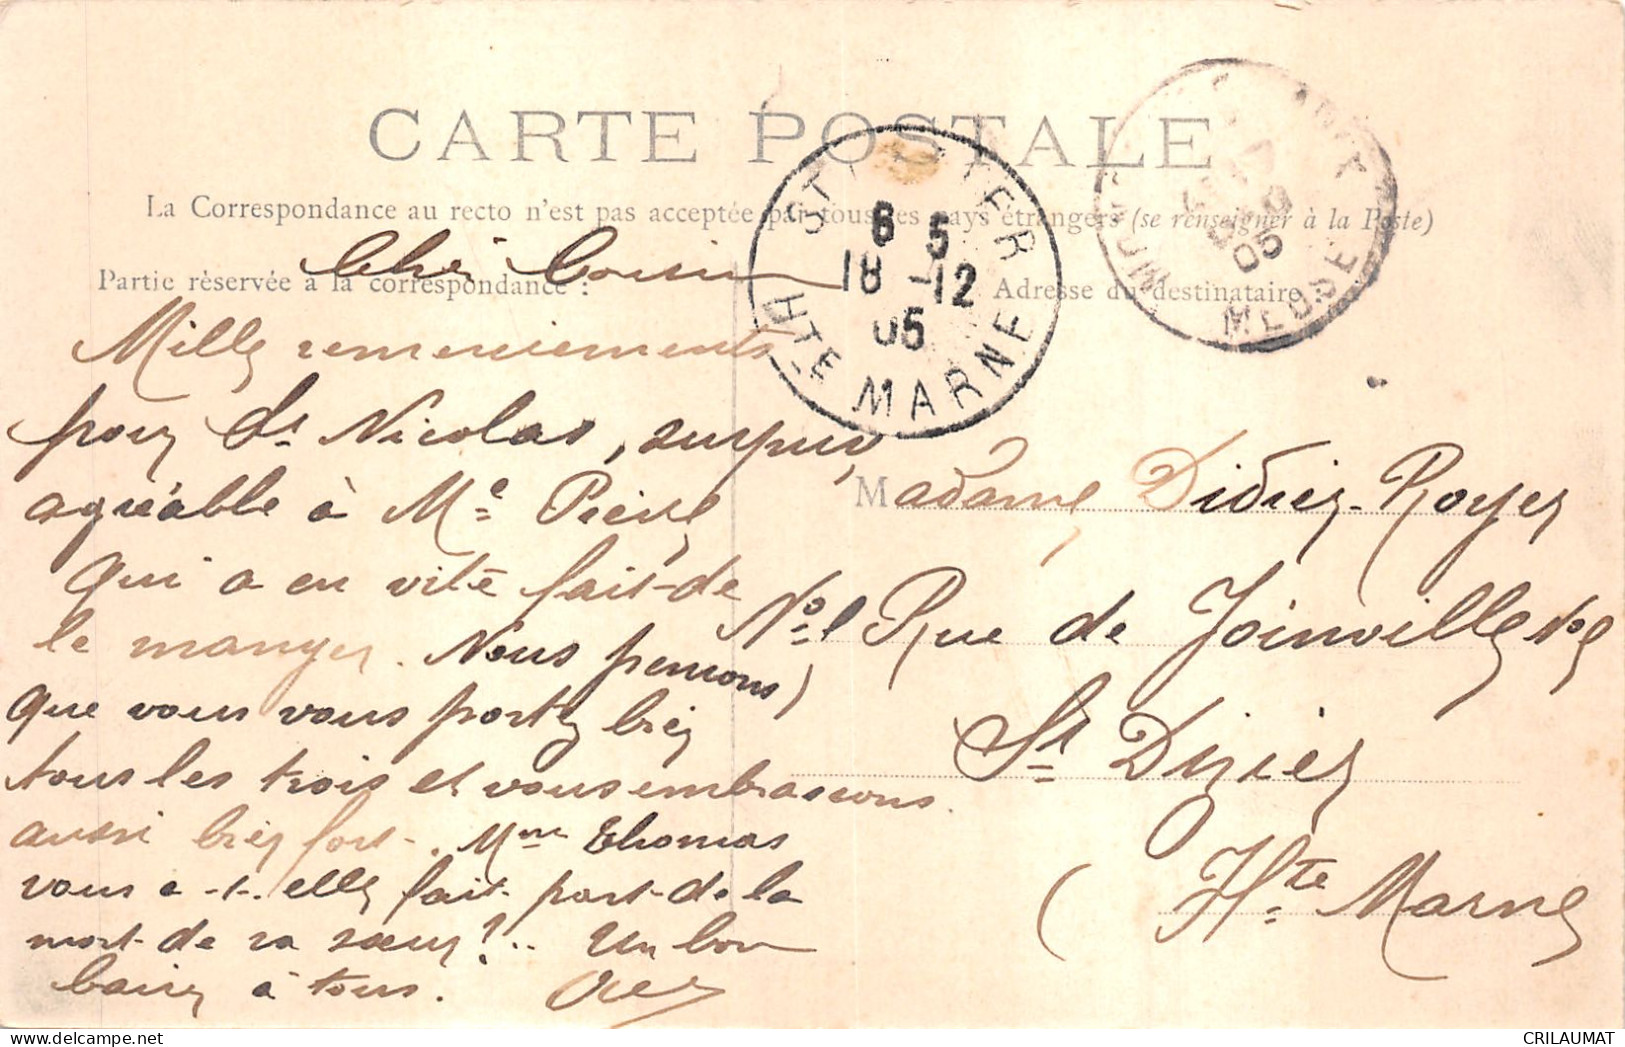 CARTE POSTALE
La Correspondance au recto n'est pas acceptée par tous les pays étrangers (se renseigner à la Poste)
Partie réservée à la correspondance :
Adresse du destinataire
ST DIZIER
6 5
18 -12
05
HTE MARNE
05
MEUSE
Cher Cousin
Mille remerciements
pour St Nicolas, surpris
agréable à Me Pierre
qui a eu vite fait de
le manger. Nous pensons
que vous vous portez bien
tous les trois et vous embrassons
aussi bien fort. Mme Thomas
vous a-t-elle fait part de la
mort de sa sœur?.. Un bon
baiser à tous.
Madame Didier-Royer
No 1 Rue de Joinville No 1
St Dizier
(Hte Marne
CRILAUMAT